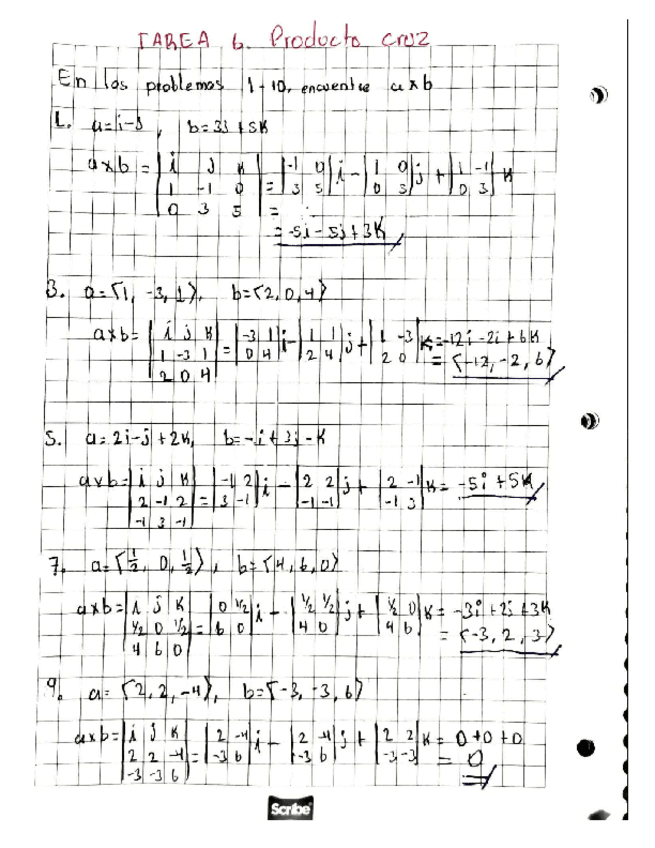 TAREA 6. Producto cruz
En los problemas 1-10, encuentre a x b
1. a=i-j, b=3j+5k
a x b = |i j k; 1 -1 0; 0 3 5| = |-1 0; 3 5|i - |1 0; 0 5|j + |1 -1; 0 3|k
=
= -5i-5j+3k
3. a=⟨1, -3, 1⟩, b=⟨2, 0, 4⟩
a x b = |i j k; 1 -3 1; 2 0 4| = |-3 1; 0 4|i - |1 1; 2 4|j + |1 -3; 2 0|k = -12i -2i + 6k
= ⟨-12, -2, 6⟩
5. a=2i-j+2k, b=-i+3j-k
a x b = |i j k; 2 -1 2; -1 3 -1| = |-1 2; 3 -1|i - |2 2; -1 -1|j + |2 -1; -1 3|k = -5i +5k
7. a=⟨1/2, 0, 1/2⟩, b=⟨4, 6, 0⟩
a x b = |i j k; 1/2 0 1/2; 4 6 0| = |0 1/2; 6 0|i - |1/2 1/2; 4 0|j + |1/2 0; 4 6|k = -3i +2j +3k
= ⟨-3, 2, 3⟩
9. a=⟨2, 2, -4⟩, b=⟨-3, -3, 6⟩
a x b = |i j k; 2 2 -4; -3 -3 6| = |2 -4; -3 6|i - |2 -4; -3 6|j + |2 2; -3 -3|k = 0+0+0
= 0
Scribe